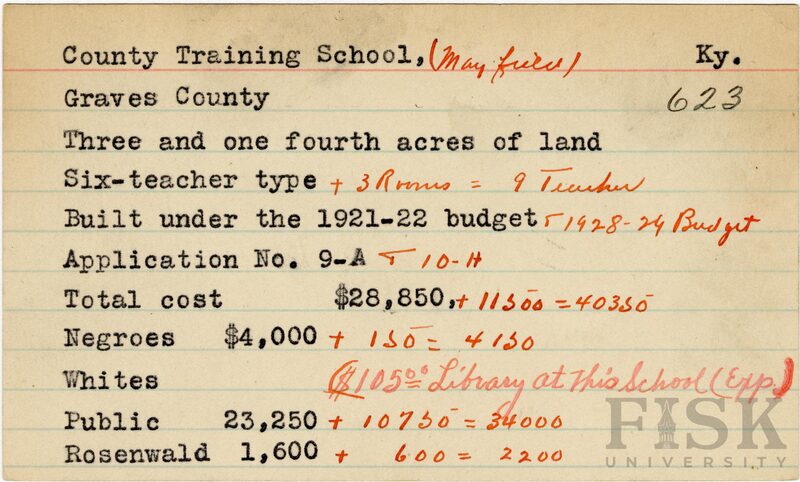 County Training School, (Mayfield) Ky.
Graves County 623
Three and one fourth acres of land
Six-teacher type + 3 Rooms = 9 Teacher
Built under the 1921-22 budget + 1928-29 Budget
Application No. 9-A + 10-H
Total cost $28,850, + 11500 = 40350
Negroes $4,000 + 150 = 4150
Whites ($105.00 Library at this School (Exp.)
Public 23,250 + 10750 = 34000
Rosenwald 1,600 + 600 = 2200
FISK
UNIVERSITY